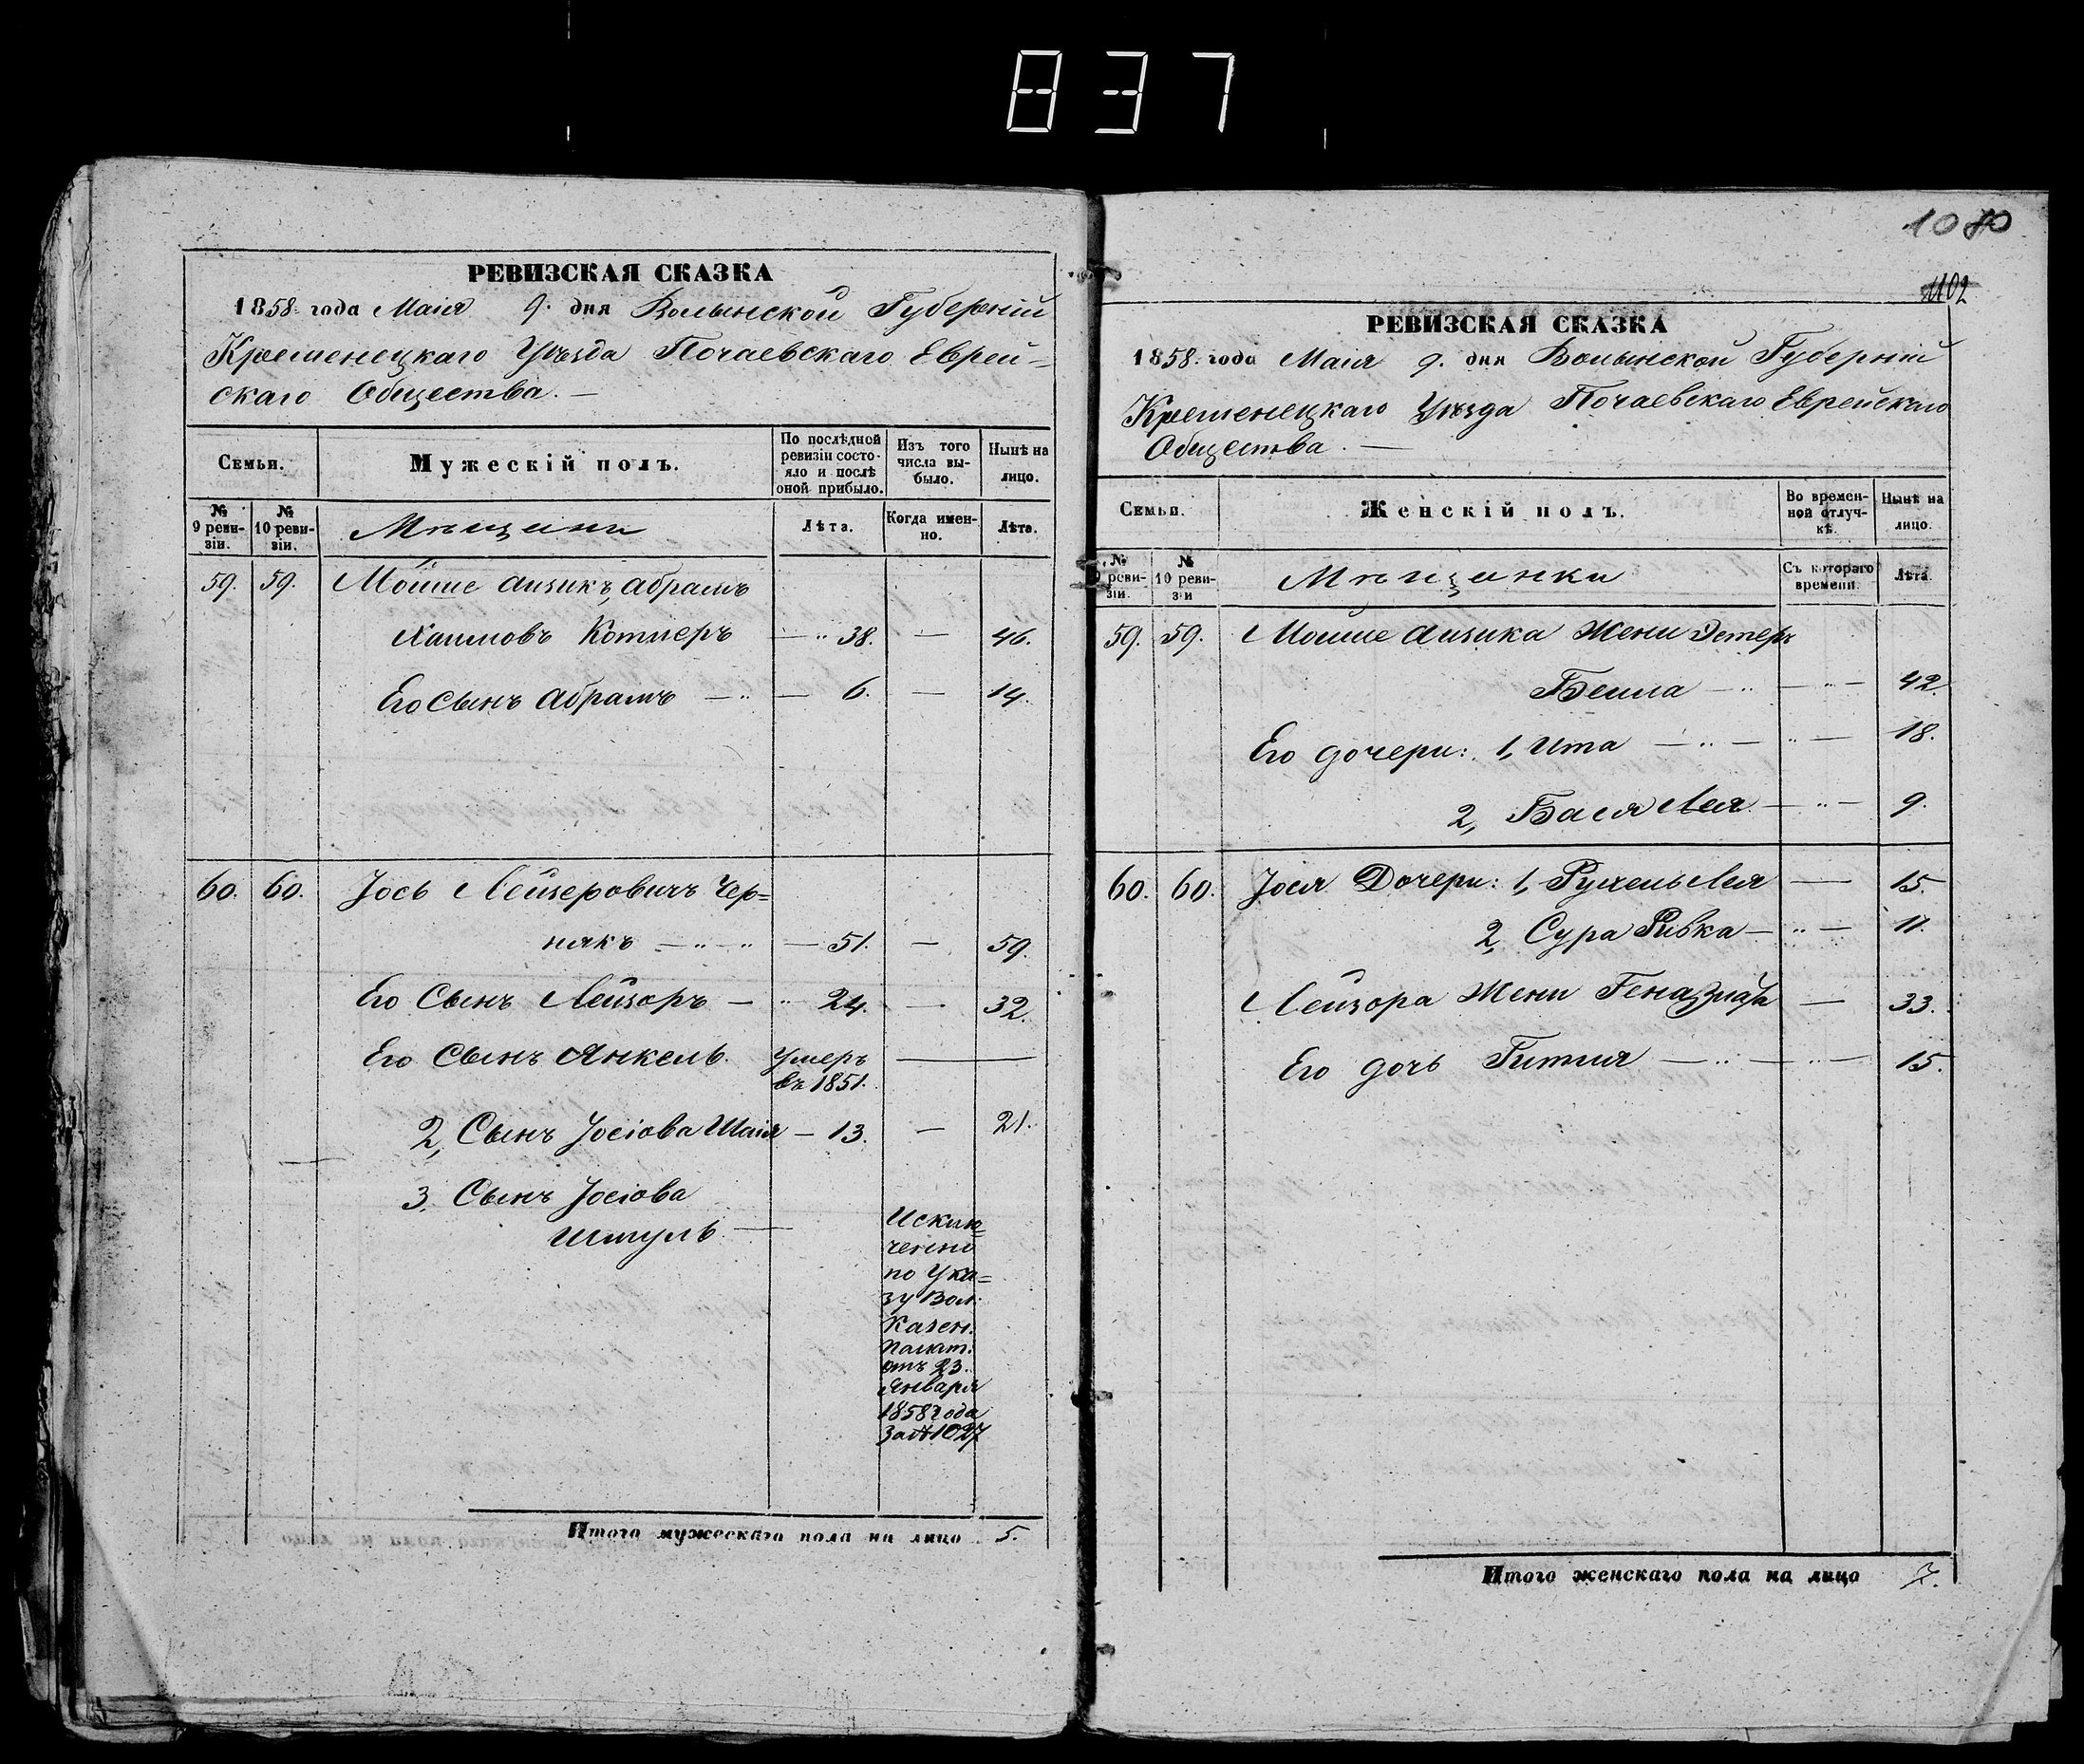 837
РЕВИЗСКАЯ СКАЗКА
1858 года Маія 9. дня Волынской Губерніи
Кременецкаго Уѣзда Почаевскаго Еврей=
скаго Общества. —
Семьи.
Мужескій полъ.
По послѣдной ревизіи состо-яло и послѣ оной прибыло.
Изъ того числа вы-было.
Нынѣ на лицо.
№ 9 реви-зіи.
№ 10 реви-зіи.
Мѣщини
Лѣта.
Когда имен-но.
Лѣта.
59. 59. Мойше Аизикъ, Абрамъ
Хаимовъ Котлеръ — " 38. — 46.
Его Сынъ Абрамъ — " — 6. — 14.
60. 60. Іось Лейзеровичъ Чер=
някъ — " — " — 51. — 59.
Его Сынъ Лейзоръ — " 24. — 32.
Его Сынъ Янкель. Умеръ
въ 1851.
2, Сынъ Іосіова Шаія — 13. — 21.
3. Сынъ Іосіова
Шмуль —
Исклю=
ченно
по Ука=
зу Вол.
Казен.
Палат.
отъ 23.
Января
1858 года
за № 1027
Итого мужескаго пола на лицо 5.
1080
1102
РЕВИЗСКАЯ СКАЗКА
1858. года Маія 9. дня Волынской Губерніи
Кременецкаго Уѣзда Почаевскаго Еврейскаго
Общества. —
Семьи.
Женскій полъ.
Во времен-ной отлуч-кѣ.
Нынѣ на лицо.
№ реви-зіи.
№ 10 реви-з и
Мѣщанки
Съ котораго времени.
Лѣта.
59. 59. Мошше Аизика Жени Этеръ
Бейла — " — " — 42
Его дочери: 1, Ита — " — " — 18.
2, Бася Лея — " — 9.
60. 60. Іося Дочери: 1, Рухель Лея — 15.
2, Сура Ривка — " — 11.
Лейзора Жени Гена — 33.
Его дочь Гитля — " — " — 15.
Итого женскаго пола на лицо 7.